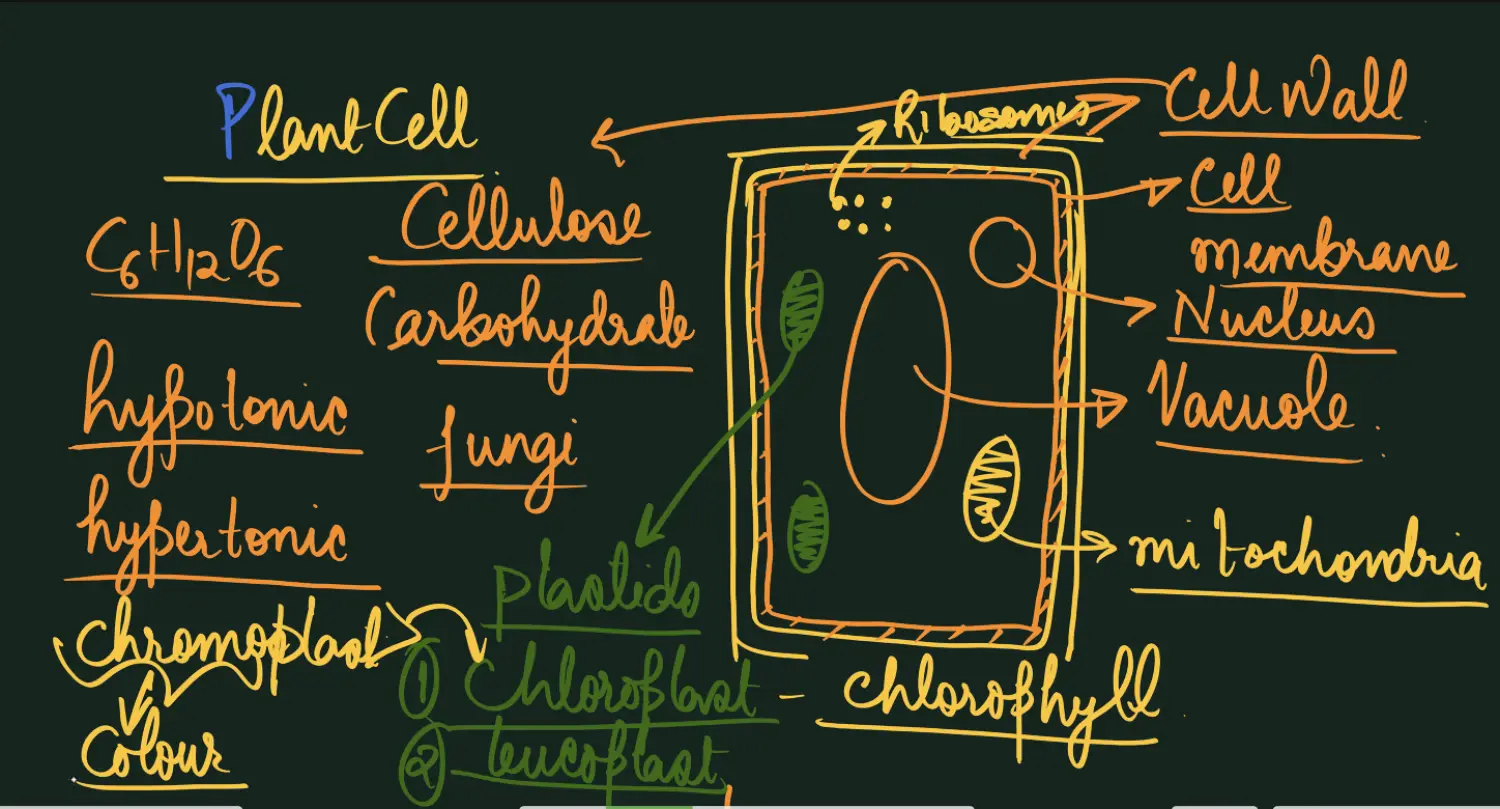 Plant Cell
C6H12O6
hypotonic
hypertonic
Chromoplast
Colour
Cellulose
Carbohydrate
fungi
Plastids
① Chloroplast - chlorophyll
② leucoplast
Ribosomes
Cell Wall
Cell
membrane
Nucleus
Vacuole.
mitochondria